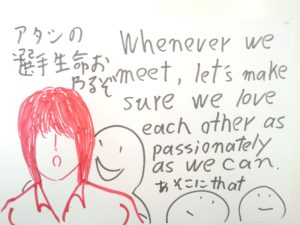 アタシの
選手生命お
わるぞ
Whenever we
meet, let's make
sure we love
each other as
passionately
as we can.
あそこに that